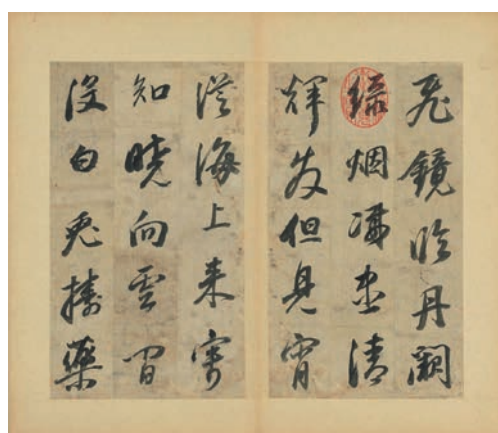 飛鏡臨丹闕
綠烟滅盡清
輝發但見宵
從海上来寧
知曉向雲間
沒白兔擣藥